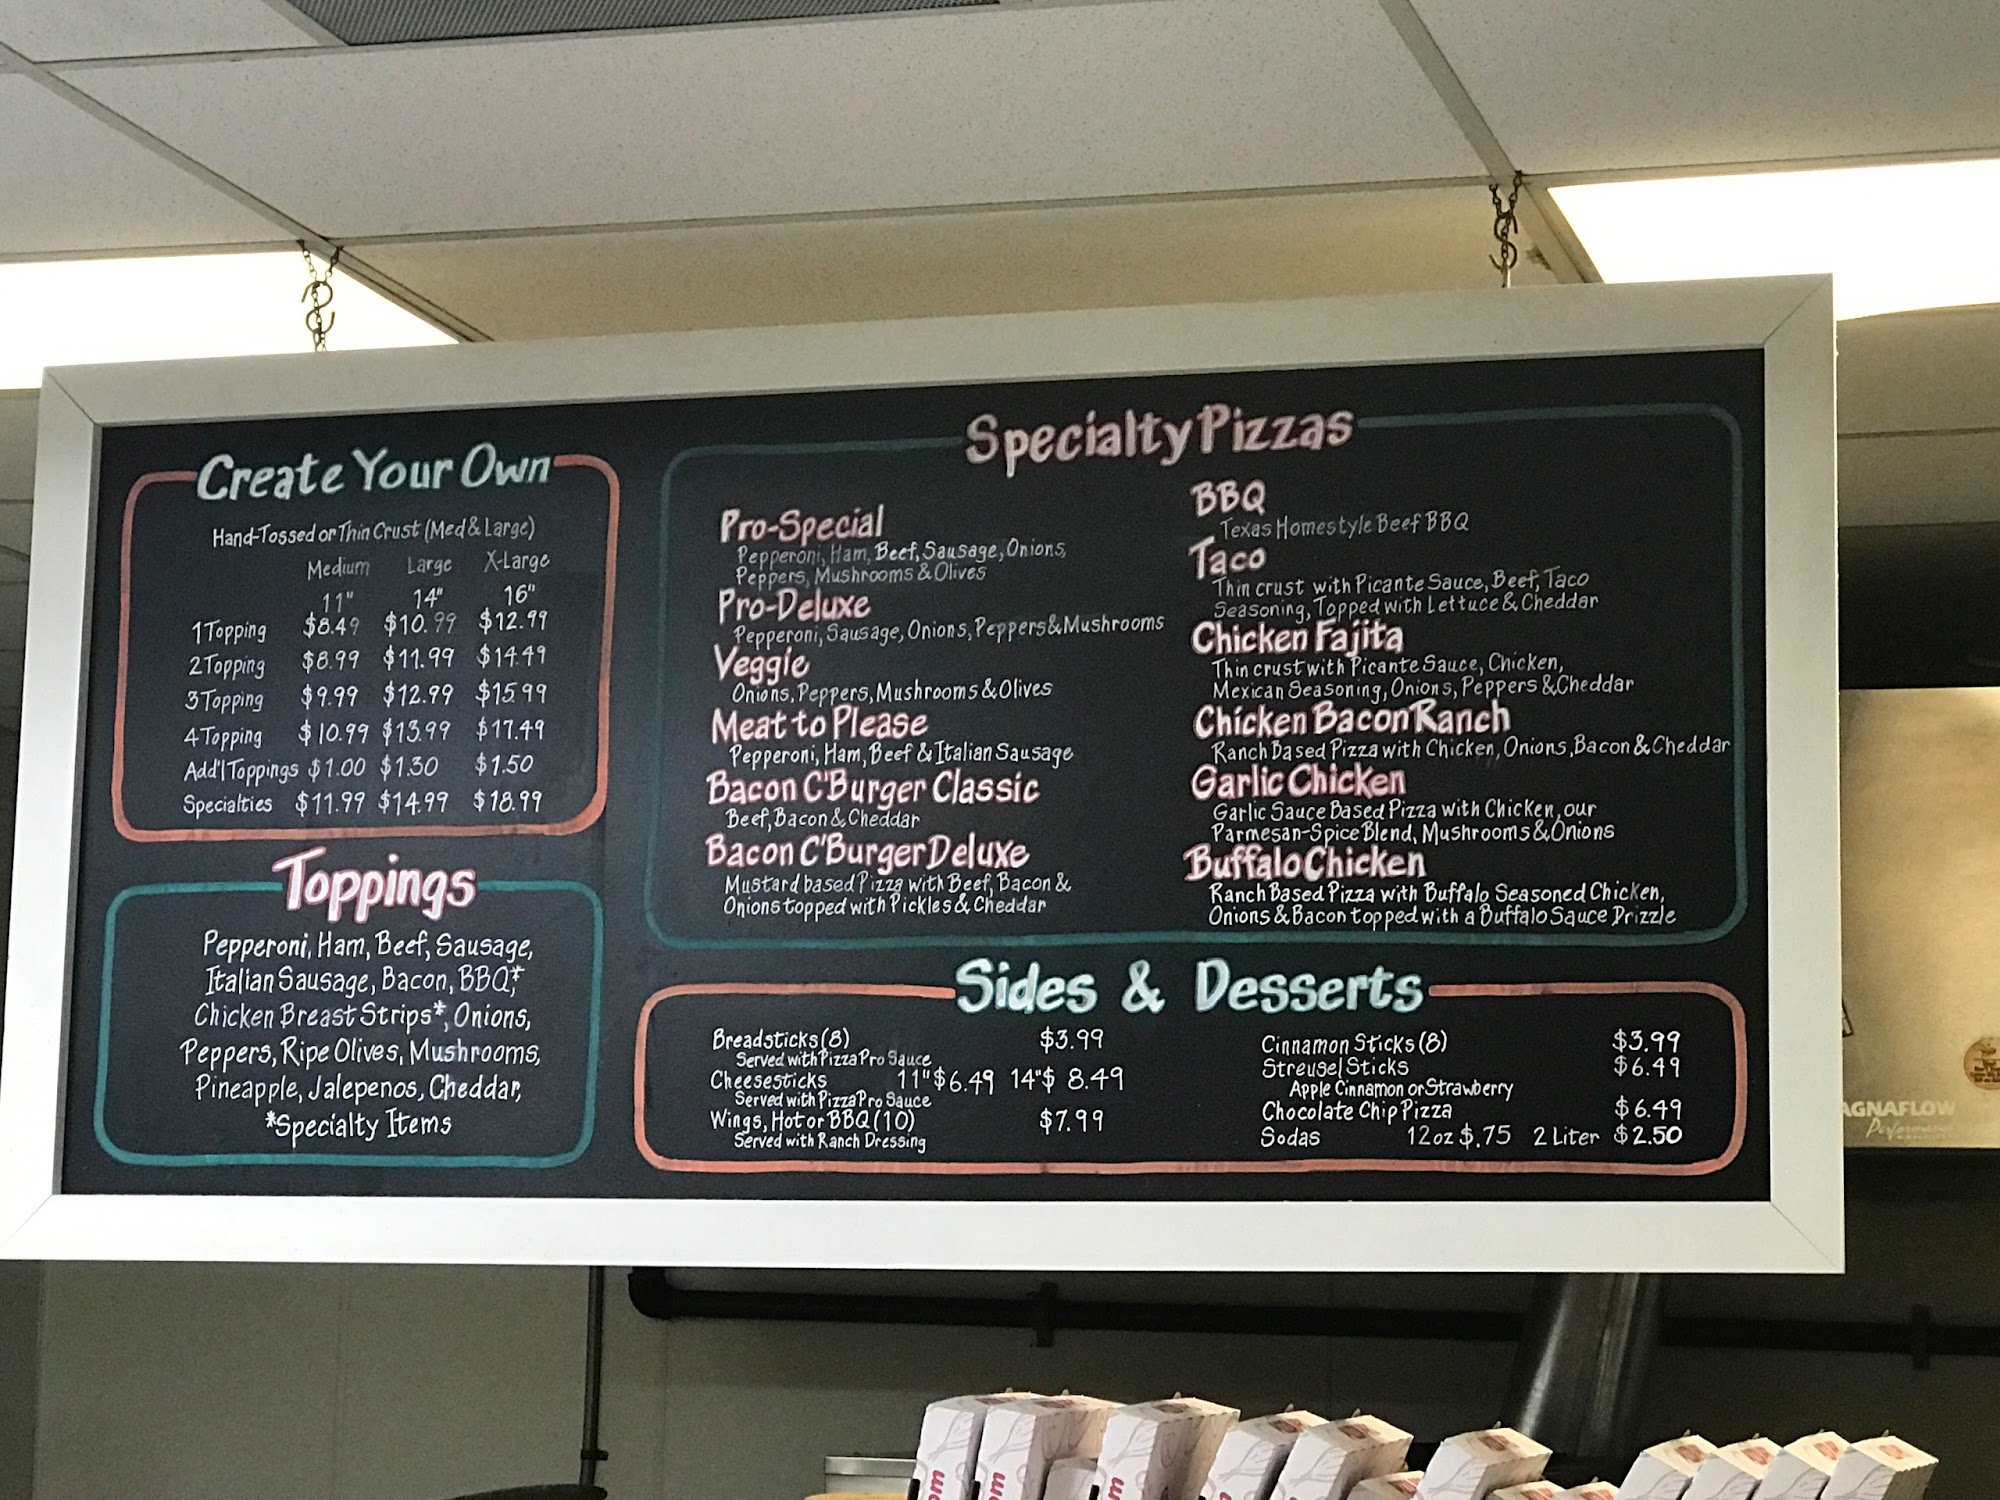 Create Your Own
Hand-Tossed or Thin Crust (Med & Large)
Medium Large X-Large
11" 14" 16"
1 Topping $8.49 $10.99 $12.99
2 Topping $8.99 $11.99 $14.49
3 Topping $9.99 $12.99 $15.99
4 Topping $10.99 $13.99 $17.49
Add'l Toppings $1.00 $1.30 $1.50
Specialties $11.99 $14.99 $18.99
Toppings
Pepperoni, Ham, Beef, Sausage,
Italian Sausage, Bacon, BBQ*,
Chicken Breast Strips*, Onions,
Peppers, Ripe Olives, Mushrooms,
Pineapple, Jalepenos, Cheddar,
*Specialty Items
Specialty Pizzas
Pro-Special
Pepperoni, Ham, Beef, Sausage, Onions,
Peppers, Mushrooms & Olives
Pro-Deluxe
Pepperoni, Sausage, Onions, Peppers & Mushrooms
Veggie
Onions, Peppers, Mushrooms & Olives
Meat to Please
Pepperoni, Ham, Beef & Italian Sausage
Bacon C'Burger Classic
Beef, Bacon & Cheddar
Bacon C'Burger Deluxe
Mustard based Pizza with Beef, Bacon &
Onions topped with Pickles & Cheddar
BBQ
Texas Homestyle Beef BBQ
Taco
Thin crust with Picante Sauce, Beef, Taco
Seasoning, Topped with Lettuce & Cheddar
Chicken Fajita
Thin crust with Picante Sauce, Chicken,
Mexican Seasoning, Onions, Peppers & Cheddar
Chicken Bacon Ranch
Ranch Based Pizza with Chicken, Onions, Bacon & Cheddar
Garlic Chicken
Garlic Sauce Based Pizza with Chicken, our
Parmesan-Spice Blend, Mushrooms & Onions
Buffalo Chicken
Ranch Based Pizza with Buffalo Seasoned Chicken,
Onions & Bacon topped with a Buffalo Sauce Drizzle
Sides & Desserts
Breadsticks (8) $3.99
Served with Pizza Pro Sauce
Cheesesticks 11" $6.49 14" $8.49
Served with Pizza Pro Sauce
Wings, Hot or BBQ (10) $7.99
Served with Ranch Dressing
Cinnamon Sticks (8) $3.99
Streusel Sticks $6.49
Apple Cinnamon or Strawberry
Chocolate Chip Pizza $6.49
Sodas 12oz $.75 2 Liter $2.50
AGNAFLOW
om
om
om